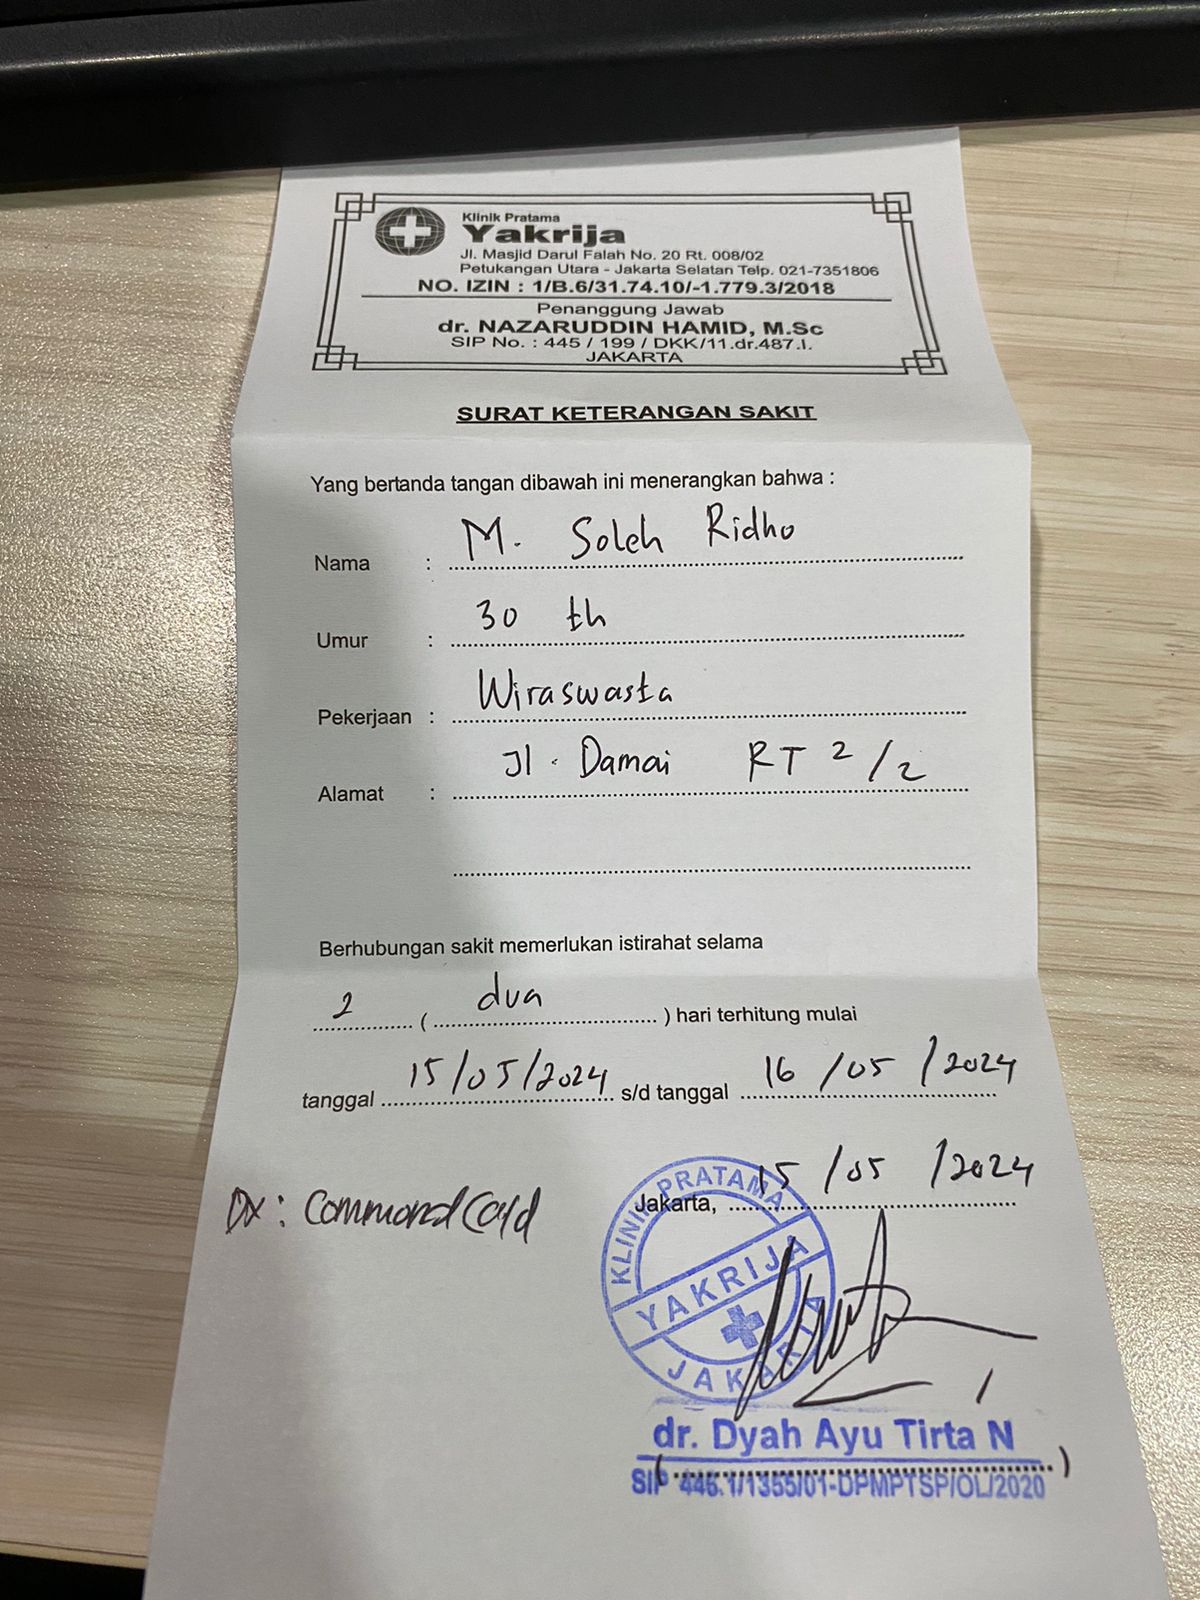 Klinik Pratama
Yakrija
Jl. Masjid Darul Falah No. 20 Rt. 008/02
Petukangan Utara - Jakarta Selatan Telp. 021-7351806
NO. IZIN : 1/B.6/31.74.10/-1.779.3/2018
Penanggung Jawab
dr. NAZARUDDIN HAMID, M.Sc
SIP No. : 445 / 199 / DKK/11.dr.487.I.
JAKARTA
SURAT KETERANGAN SAKIT
Yang bertanda tangan dibawah ini menerangkan bahwa :
Nama : M. Soleh Ridho
Umur : 30 th
Pekerjaan : Wiraswasta
Alamat : Jl. Damai RT 2/2
Berhubungan sakit memerlukan istirahat selama
2 ( dua ) hari terhitung mulai
tanggal 15/05/2024 s/d tanggal 16/05/2024
Jakarta, 15/05/2024
Dx : Commond Cold
KLINIK PRATAMA
YAKRIJA
JAKARTA
dr. Dyah Ayu Tirta N
SIP 446.1/1355/01-DPMPTSP/OL/2020